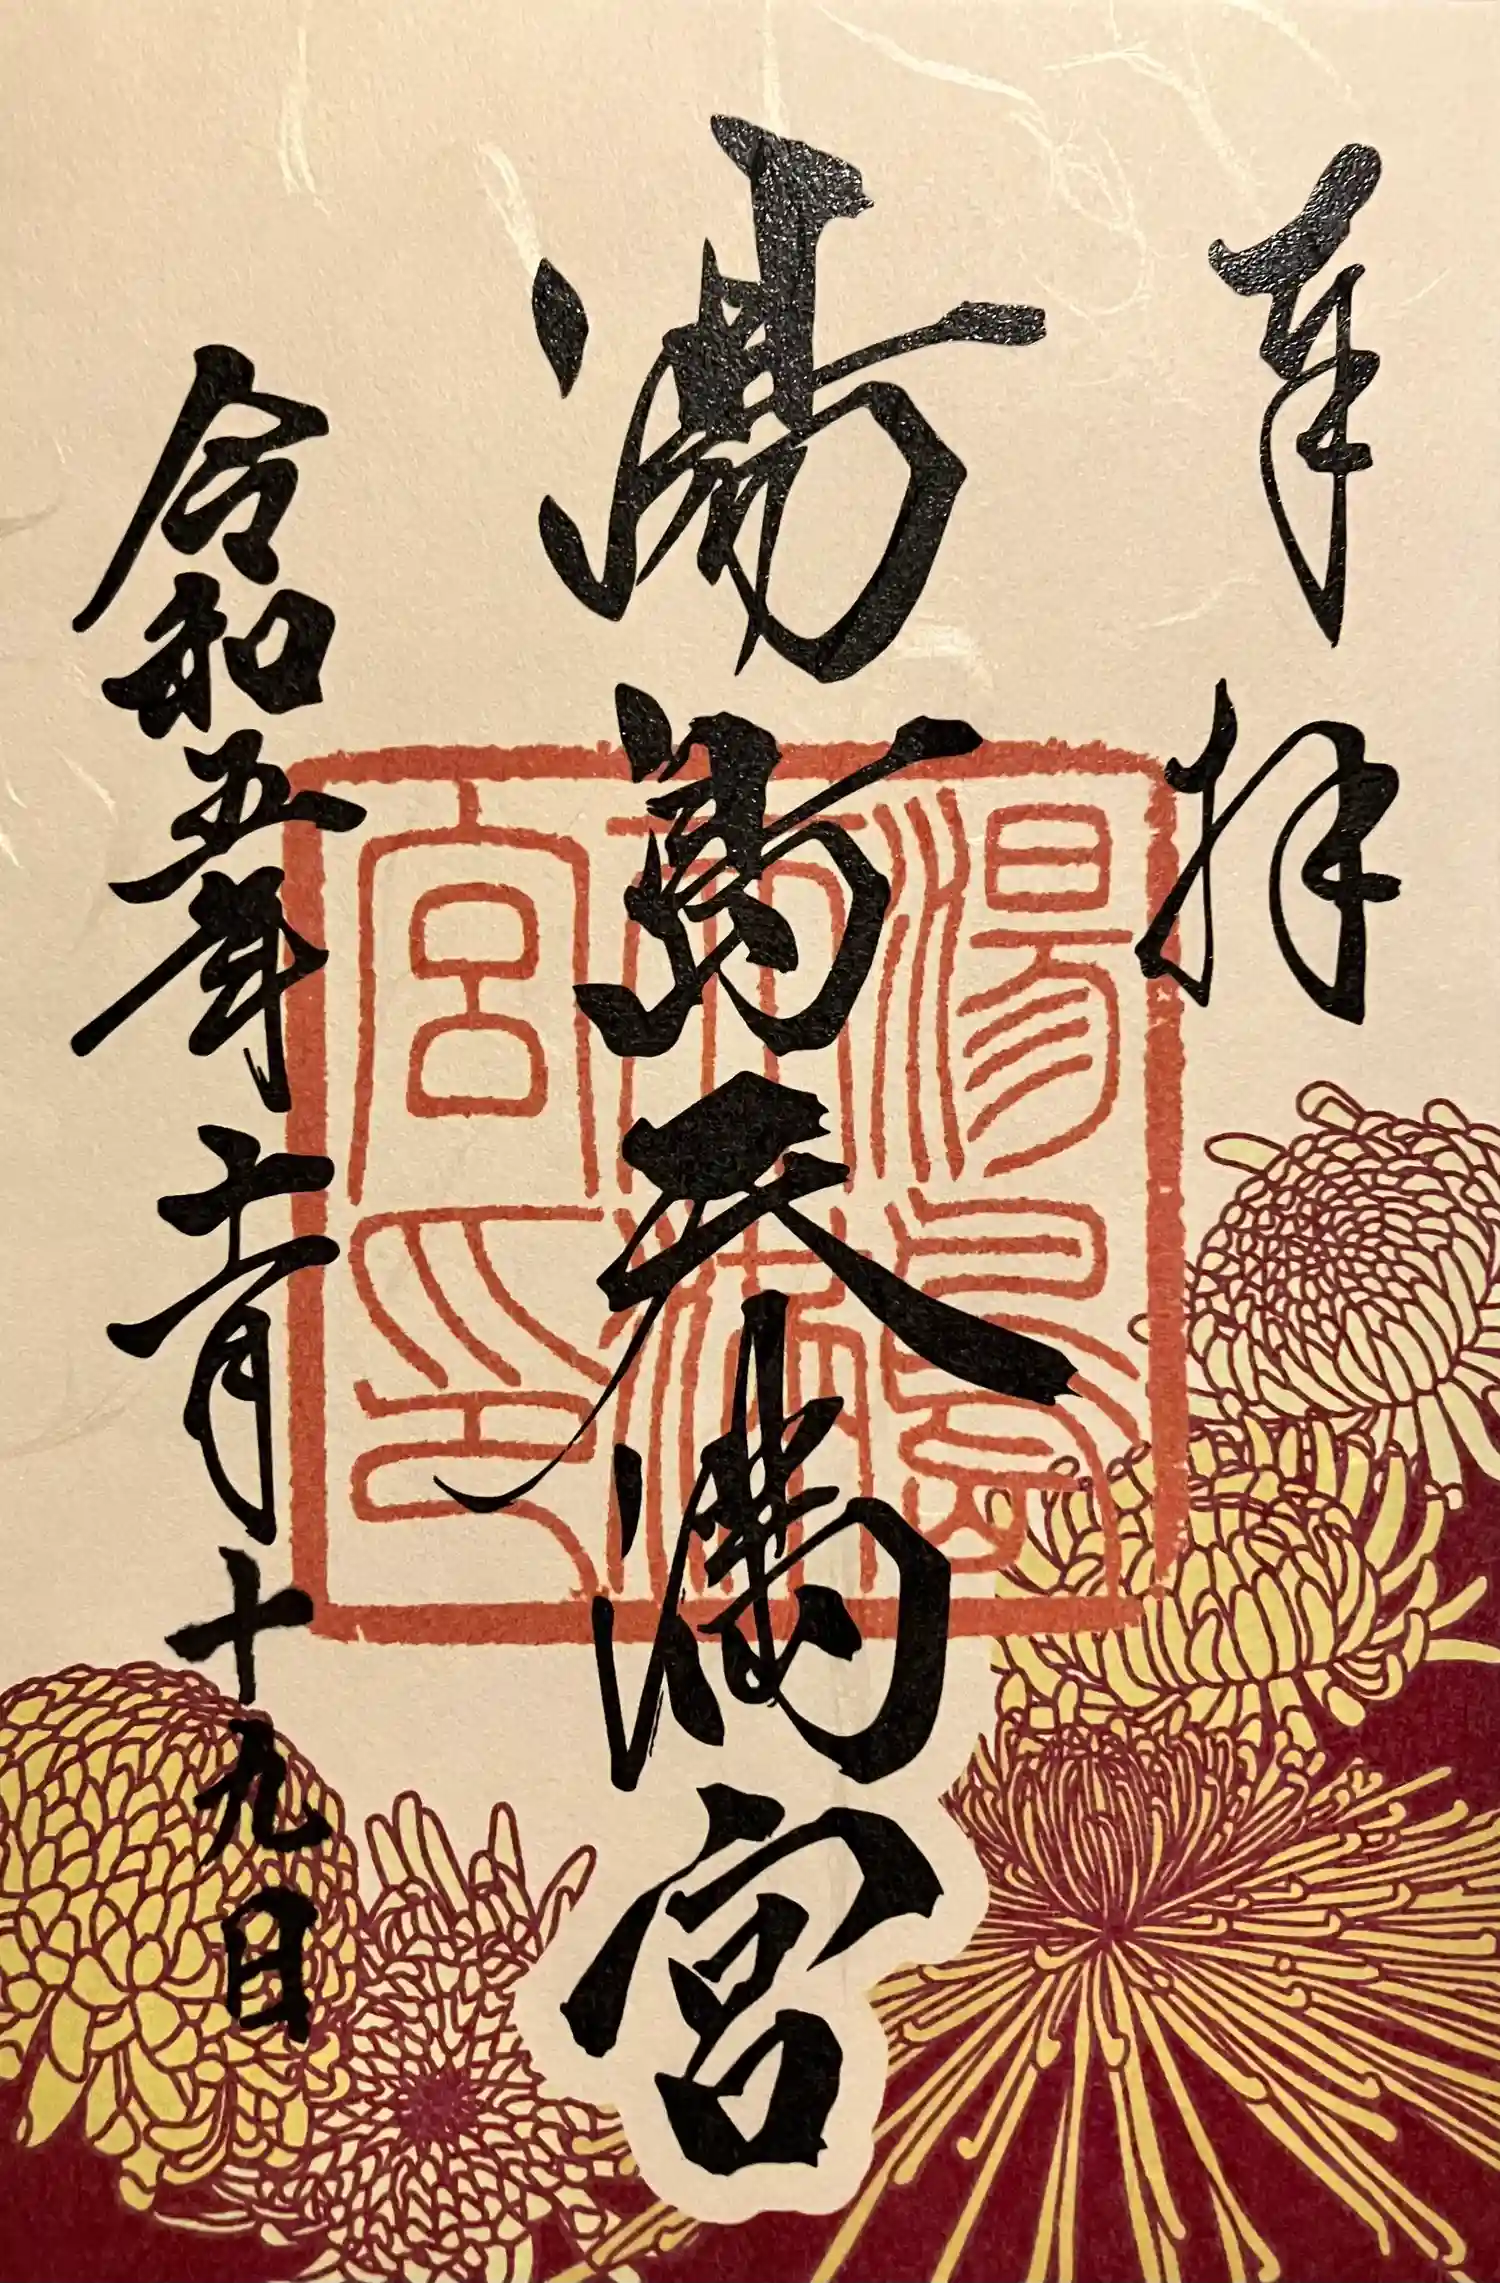 奉拝
湯島天満宮
令和五年十一月十九日
湯島
天満
宮印